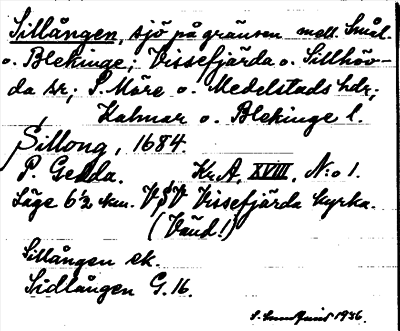 Sillången, sjö på gränsen mell. Smål.
o. Blekinge; Vissefjärda o. Sillhöv-
da snr; S. Möre o. Medelstads hdr;
Kalmar o. Blekinge l.
Sillong, 1684.
P. Gedda. Kr. A. XVIII, N:o 1.
Läge 6½ km. VSV Vissefjärda kyrka.
(Vänd!)
Sillången ek.
Sidlången G. 16.
1936.